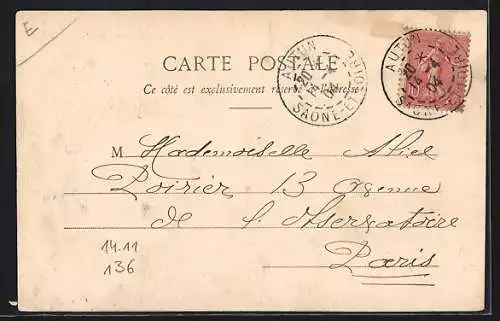 E
CARTE POSTALE
Ce côté est exclusivement réservé à l'adresse
AUTUN
20
4
04
SAONE-ET-LOIRE
AUTUN
20
4
04
SAONE-ET-LOIRE
10
M Mademoiselle
Poirier 13 Avenue
de l'Observatoire
Paris
14.11
136